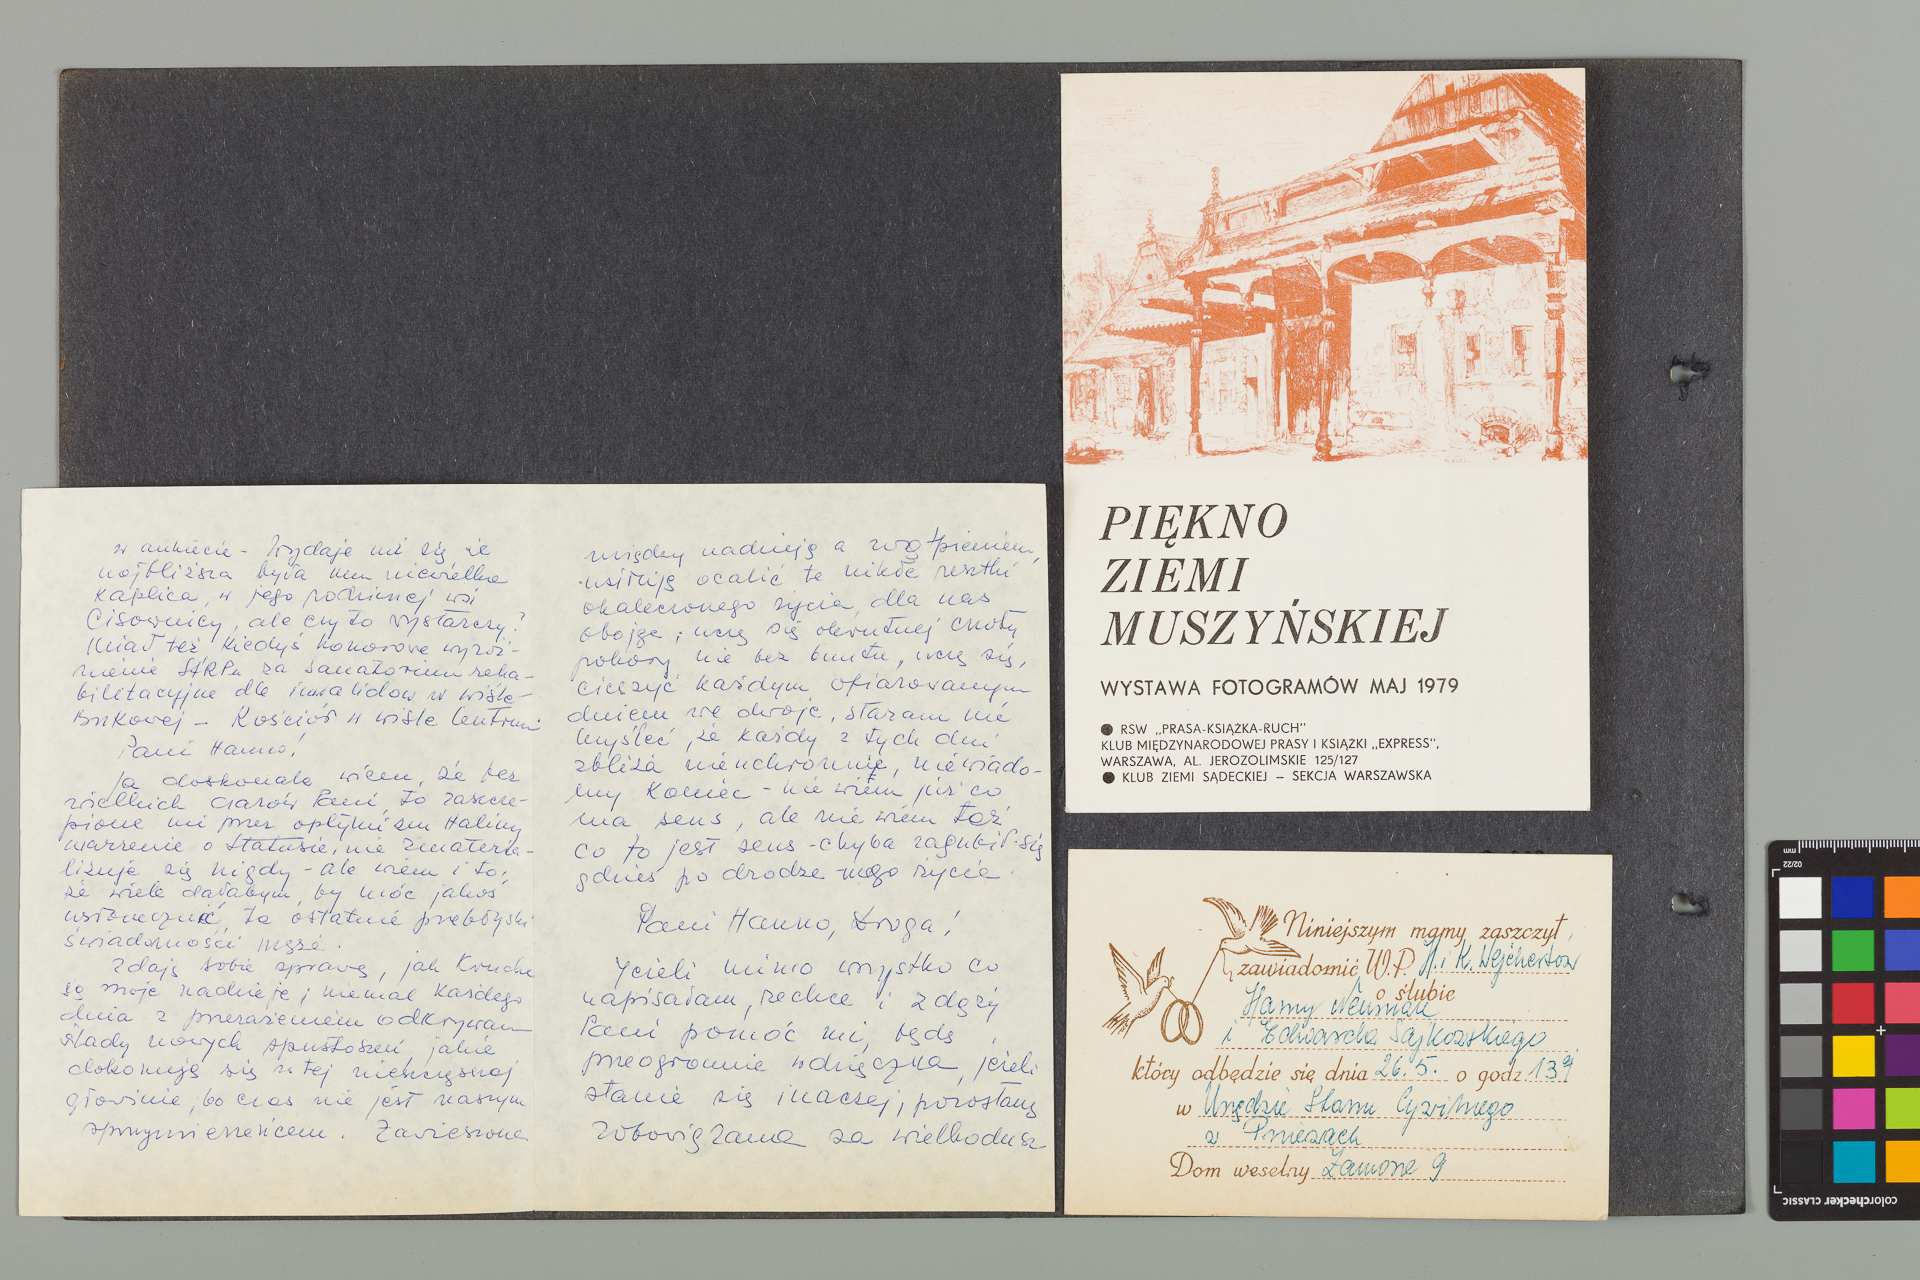 w ankiecie - Wydaje mi się że
najbliższa była mu niewielka
Kaplica, w jego rodzinnej wsi
Cisownicy, ale czy to wystarczy?
Miał też kiedyś honorowe wyróż-
nienie SARPu za Sanatorium reha-
bilitacyjne dla inwalidów w Wiśle-
Bukowej - Kościół w Wiśle Centrum
Pani Hanno!
Ja doskonale wiem, że bez
wielkich czarów Pani, to zaszcze-
pione mi przez optymizm Haliny
marzenie o Statusie, nie zmateria-
lizuje się nigdy - ale wiem i to,
że wiele dałabym, by móc jakoś
usłonecznić, te ostatnie przebłyski
świadomości męża.
Zdaję sobie sprawę, jak kruche
są moje nadzieje i niemal każdego
dnia z przerażeniem odkrywam
ślady nowych spustoszeń, jakie
dokonują się w tej nieszczęsnej
głowinie, bo czas nie jest naszym
sprzymierzeńcem. Zawieszona
między nadzieją a zwątpieniem,
usiłuję ocalić te nikłe resztki
okaleczonego życia, dla nas
obojga; uczę się okrutnej cnoty
pokory nie bez buntu, uczę się,
cieszyć każdym ofiarowanym
dniem we dwoje, staram nie
myśleć, że każdy z tych dni
zbliża nieuchronnie, niewiado-
my koniec - nie wiem już co
ma sens, ale nie wiem też
co to jest sens - chyba zagubił się
gdzieś po drodze mego życia.
Pani Hanno, Droga!
Jeżeli mimo wszystko co
napisałam, zechce i zdąży
Pani pomóc mi, będę
przeogromnie wdzięczna, jeżeli
stanie się inaczej, pozostanę
zobowiązana za wielkodusz
PIĘKNO
ZIEMI
MUSZYŃSKIEJ
WYSTAWA FOTOGRAMÓW MAJ 1979
● RSW „PRASA-KSIĄŻKA-RUCH”
KLUB MIĘDZYNARODOWEJ PRASY I KSIĄŻKI „EXPRESS”,
WARSZAWA, AL. JEROZOLIMSKIE 125/127
● KLUB ZIEMI SĄDECKIEJ – SEKCJA WARSZAWSKA
Niniejszym mamy zaszczyt
zawiadomić W.P. H. i K. Wejchertów
o ślubie
Hanny Neuman
i Edwarda Sajkowskiego
który odbędzie się dnia 26.5. o godz. 13
w Urzędzie Stanu Cywilnego
w
Dom weselny 9
mm
02/22
colorchecker CLASSIC